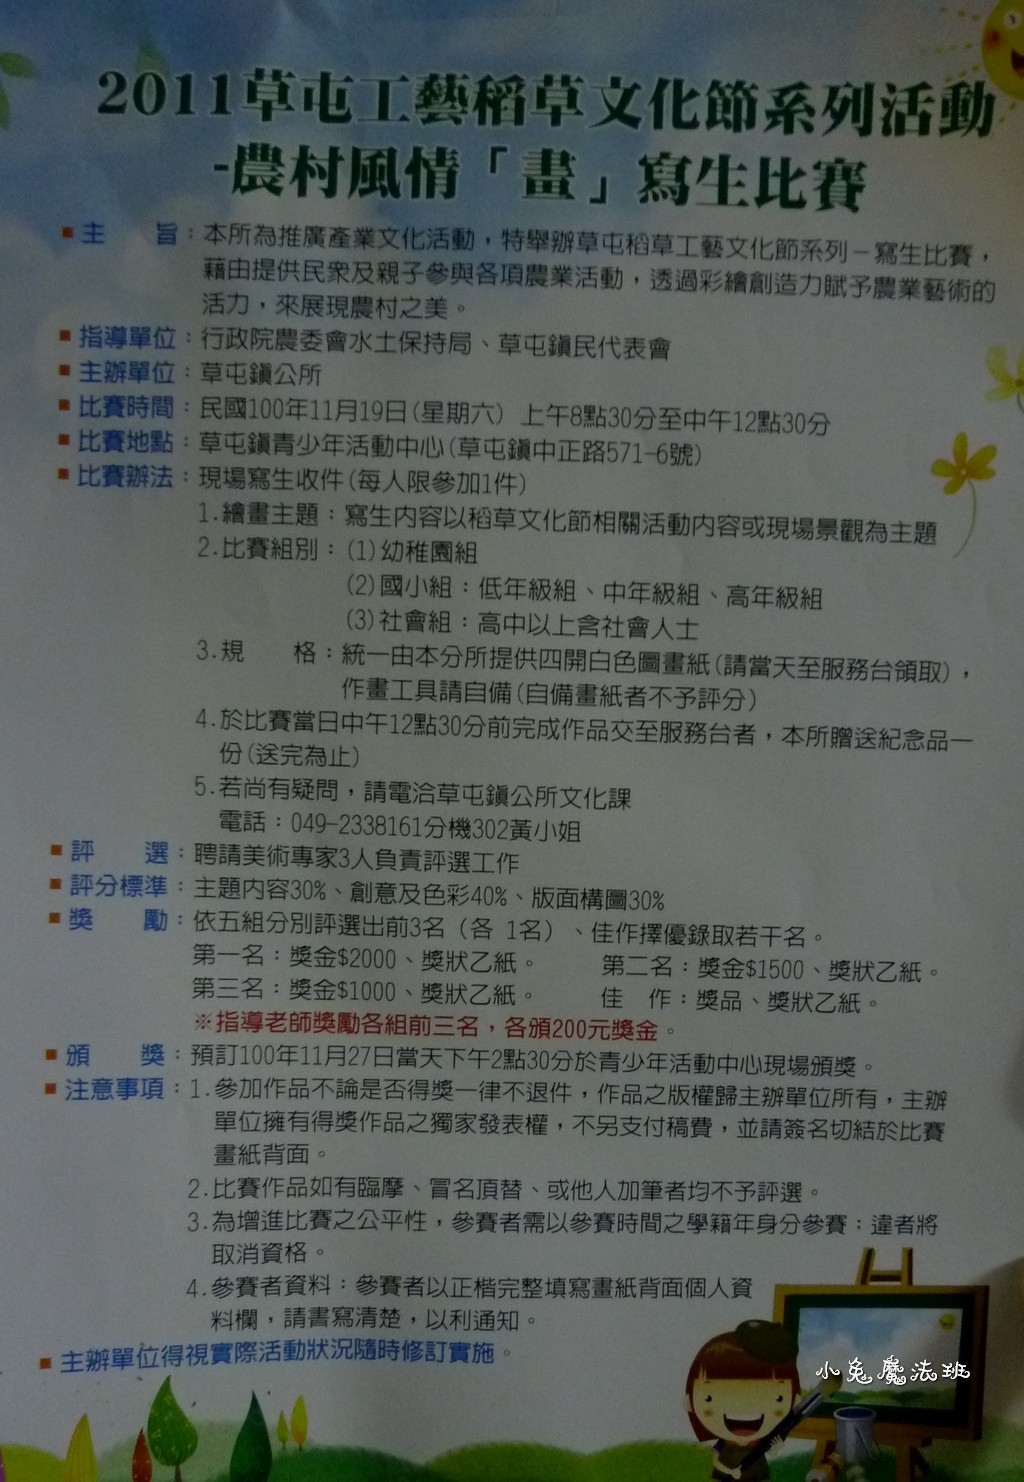 2011草屯工藝稻草文化節系列活動
-農村風情「畫」寫生比賽
■主　　旨：本所為推廣產業文化活動，特舉辦草屯稻草工藝文化節系列－寫生比賽，
藉由提供民眾及親子參與各項農業活動，透過彩繪創造力賦予農業藝術的
活力，來展現農村之美。
■指導單位：行政院農委會水土保持局、草屯鎮民代表會
■主辦單位：草屯鎮公所
■比賽時間：民國100年11月19日(星期六) 上午8點30分至中午12點30分
■比賽地點：草屯鎮青少年活動中心(草屯鎮中正路571-6號)
■比賽辦法：現場寫生收件(每人限參加1件)
1.繪畫主題：寫生內容以稻草文化節相關活動內容或現場景觀為主題
2.比賽組別：(1)幼稚園組
(2)國小組：低年級組、中年級組、高年級組
(3)社會組：高中以上含社會人士
3.規　　格：統一由本分所提供四開白色圖畫紙(請當天至服務台領取)，
作畫工具請自備(自備畫紙者不予評分)
4.於比賽當日中午12點30分前完成作品交至服務台者，本所贈送紀念品一
份(送完為止)
5.若尚有疑問，請電洽草屯鎮公所文化課
電話：049-2338161分機302黃小姐
■評　　選：聘請美術專家3人負責評選工作
■評分標準：主題內容30%、創意及色彩40%、版面構圖30%
■獎　　勵：依五組分別評選出前3名（各 1名）、佳作擇優錄取若干名。
第一名：獎金$2000、獎狀乙紙。　　第二名：獎金$1500、獎狀乙紙。
第三名：獎金$1000、獎狀乙紙。　　佳　作：獎品、獎狀乙紙。
※指導老師獎勵各組前三名，各頒200元獎金。
■頒　　獎：預訂100年11月27日當天下午2點30分於青少年活動中心現場頒獎。
■注意事項：1.參加作品不論是否得獎一律不退件，作品之版權歸主辦單位所有，主辦
單位擁有得獎作品之獨家發表權，不另支付稿費，並請簽名切結於比賽
畫紙背面。
2.比賽作品如有臨摩、冒名頂替、或他人加筆者均不予評選。
3.為增進比賽之公平性，參賽者需以參賽時間之學籍年身分參賽；違者將
取消資格。
4.參賽者資料：參賽者以正楷完整填寫畫紙背面個人資
料欄，請書寫清楚，以利通知。
■主辦單位得視實際活動狀況隨時修訂實施。
小兔魔法班